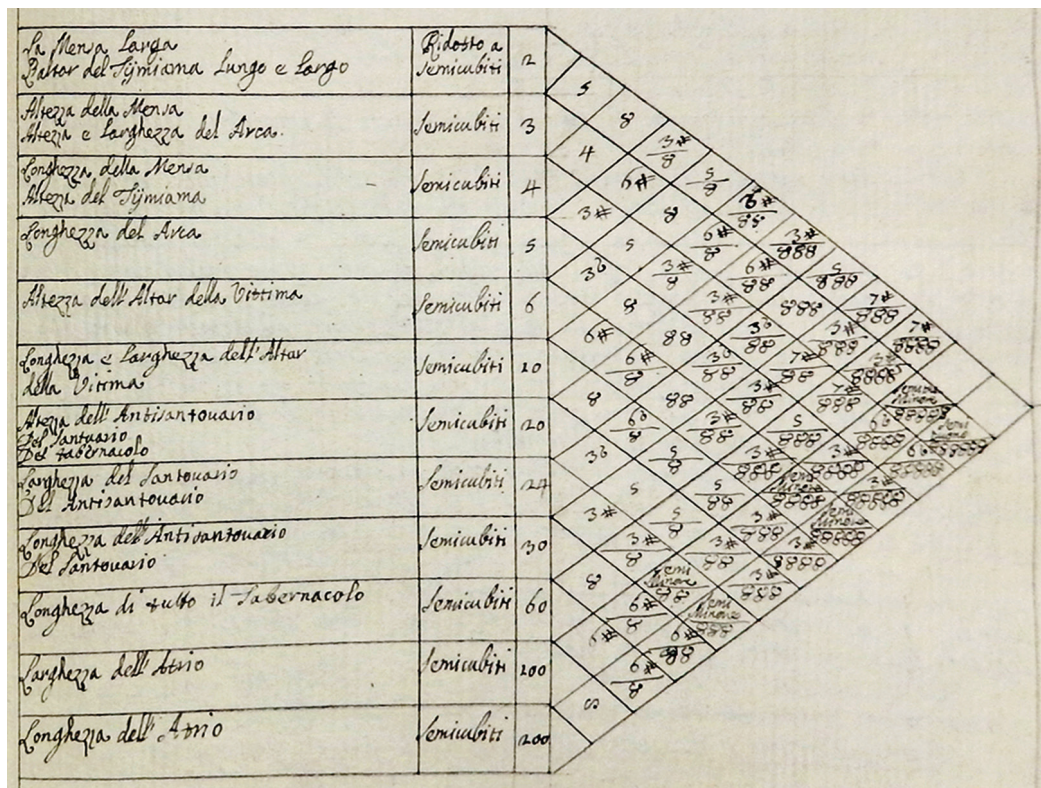 La Mensa Larga
L'altar del Tijmiama Lungo e Largo
Ridotto a
Semicubiti 2
Altezza della Mensa
Altezza e Larghezza del Arca.
Semicubiti 3
Longhezza della Mensa
Altezza del Tijmiama
Semicubiti 4
Longhezza del Arca
Semicubiti 5
Altezza dell'Altar della Vittima
Semicubiti 6
Longhezza e Larghezza dell'Altar
della Vitima
Semicubiti 10
Altezza dell'Antisantouario
Del Santuario
Del tabernacolo
Semicubiti 20
Larghezza del Santouario
Del Antisantouario
Semicubiti 24
Longhezza dell'Antisantouario
Del Santouario
Semicubiti 30
Longhezza di tutto il Tabernacolo
Semicubiti 60
Larghezza dell'Atrio
Semicubiti 100
Longhezza dell'Atrio
Semicubiti 200
5
8
3#
8
4
5
8
6#
3#
88
3#
8
3#
888
6#
8
5
5
888
3b
3#
8
6#
88
7#
888
8
3#
88
888
7#
8888
6#
88
3b
88
3#
888
6#
8
3b
88
7#
88
3#
8888
8
88
3#
88
7#
888
Semi
Minore
6b
8
3#
88
5
888
6b
8888
3b
5
8
3#
888
3#
8888
5
5
88
Semi
Minore
3#
3#
5
8
3#
888
Semi
Minore
3#
8
3#
88
3#
8888
8
Semi
Minore
88
3#
888
6#
8
Semi
Minore
888
6#
6#
88
6#
8
8